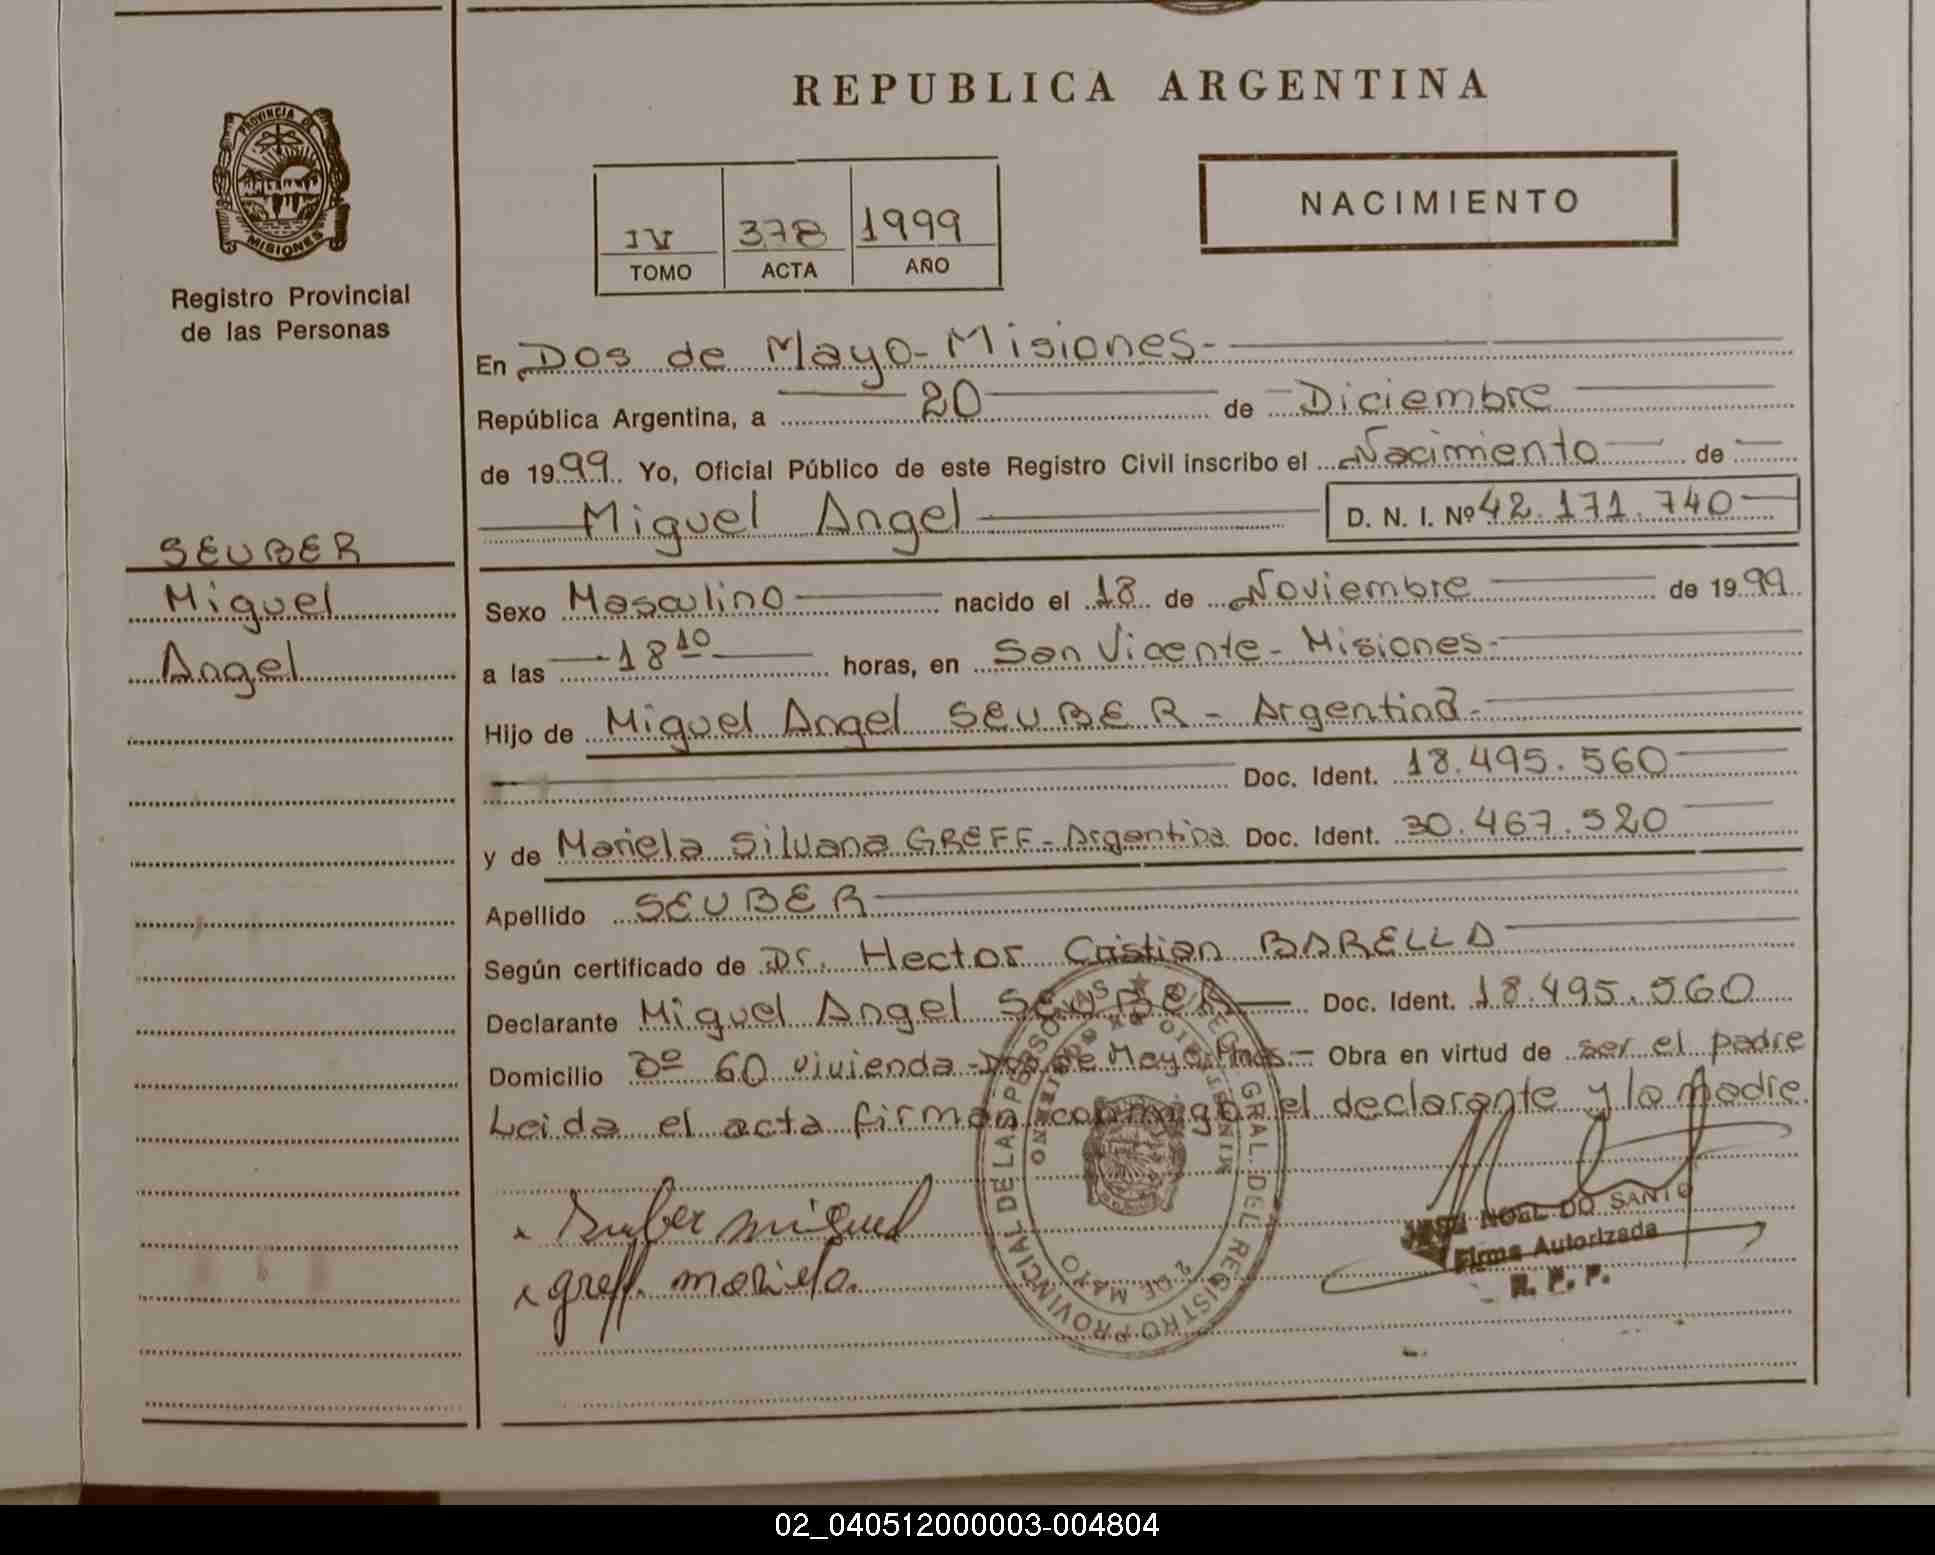 REPUBLICA ARGENTINA
PROVINCIA DE
MISIONES
Registro Provincial
de las Personas
IV 378 1999
TOMO ACTA AÑO
NACIMIENTO
En Dos de Mayo - Misiones -
República Argentina, a 20 de Diciembre
de 1999. Yo, Oficial Público de este Registro Civil inscribo el Nacimiento de
Miguel Angel D. N. I. Nº 42.171.740
SEUBER
Miguel
Angel
Sexo Masculino nacido el 18 de Noviembre de 1999
a las 18 10 horas, en San Vicente - Misiones -
Hijo de Miguel Angel SEUBER - Argentina -
Doc. Ident. 18.495.560
y de Mariela Silvana GREFF - Argentina Doc. Ident. 30.467.520
Apellido SEUBER
Según certificado de Dr. Hector Cristian BARELLA
Declarante Miguel Angel SEUBER Doc. Ident. 18.495.560
Domicilio Bº 60 vivienda - Dos de Mayo Mnes. - Obra en virtud de ser el padre
Leida el acta firman conmigo el declarante y la madre.
Seuber miguel
greff mariela.
GRAL. DEL REGISTRO PROVINCIAL DE LAS PERSONAS
2 DE MAYO
NOEL DO SANTO
Firma Autorizada
R. P. P.
02_040512000003-004804